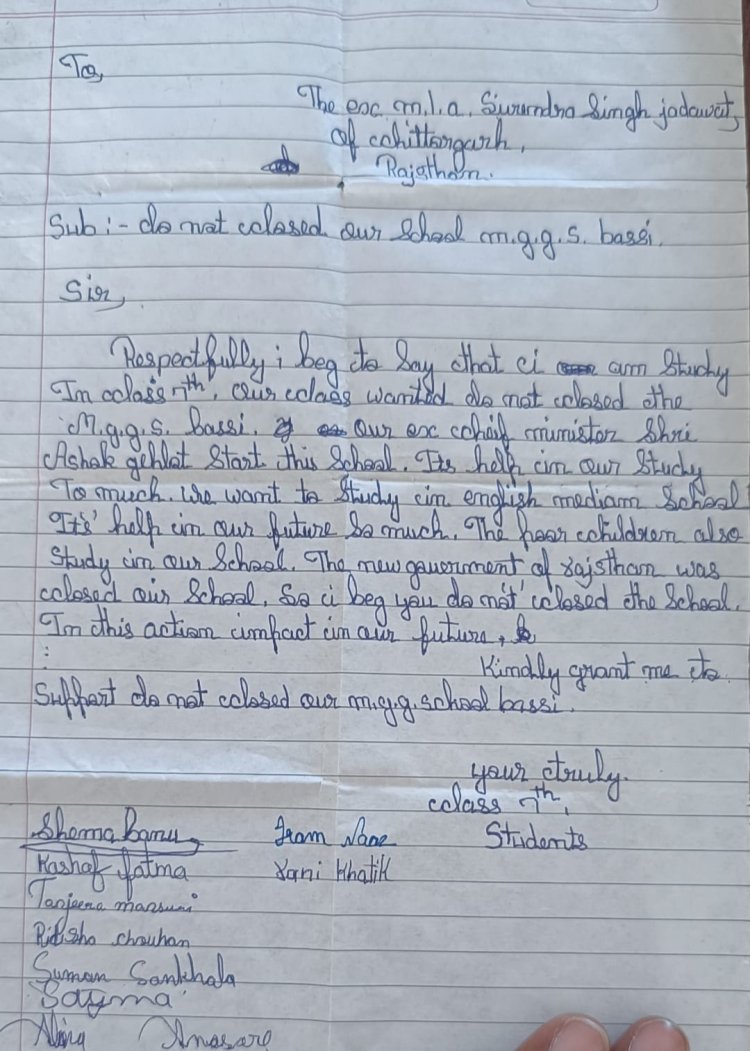 To,
The exc. m.l.a. Surendra Singh jadawat,
of chittorgarh,
Rajsthan.
Sub :- do not closed our School m.g.g.s. bassi.
Sir,
Respectfully i beg to Say that i am Study
In class 7th, Our class wanted do not closed the
M.g.g.s. bassi. Our exc cheif minister Shri
Ashok gehlot Start this School. Its help in our Study
To much. We want to Study in english mediam School
It's' help in our future So much. The poor children also
Study in our School. The new gouernment of rajsthan was
closed our School. So i beg you do not closed the School.
In this action impact in our future,
Kindly grant me to
Support do not closed our m.g.g. school bassi.
your truly.
class 7th,
Students
Shama banu Iram
Kashaf fatma Khatik
Tanjeena mansuri
chouhan
Suman Sankhala
Sayma